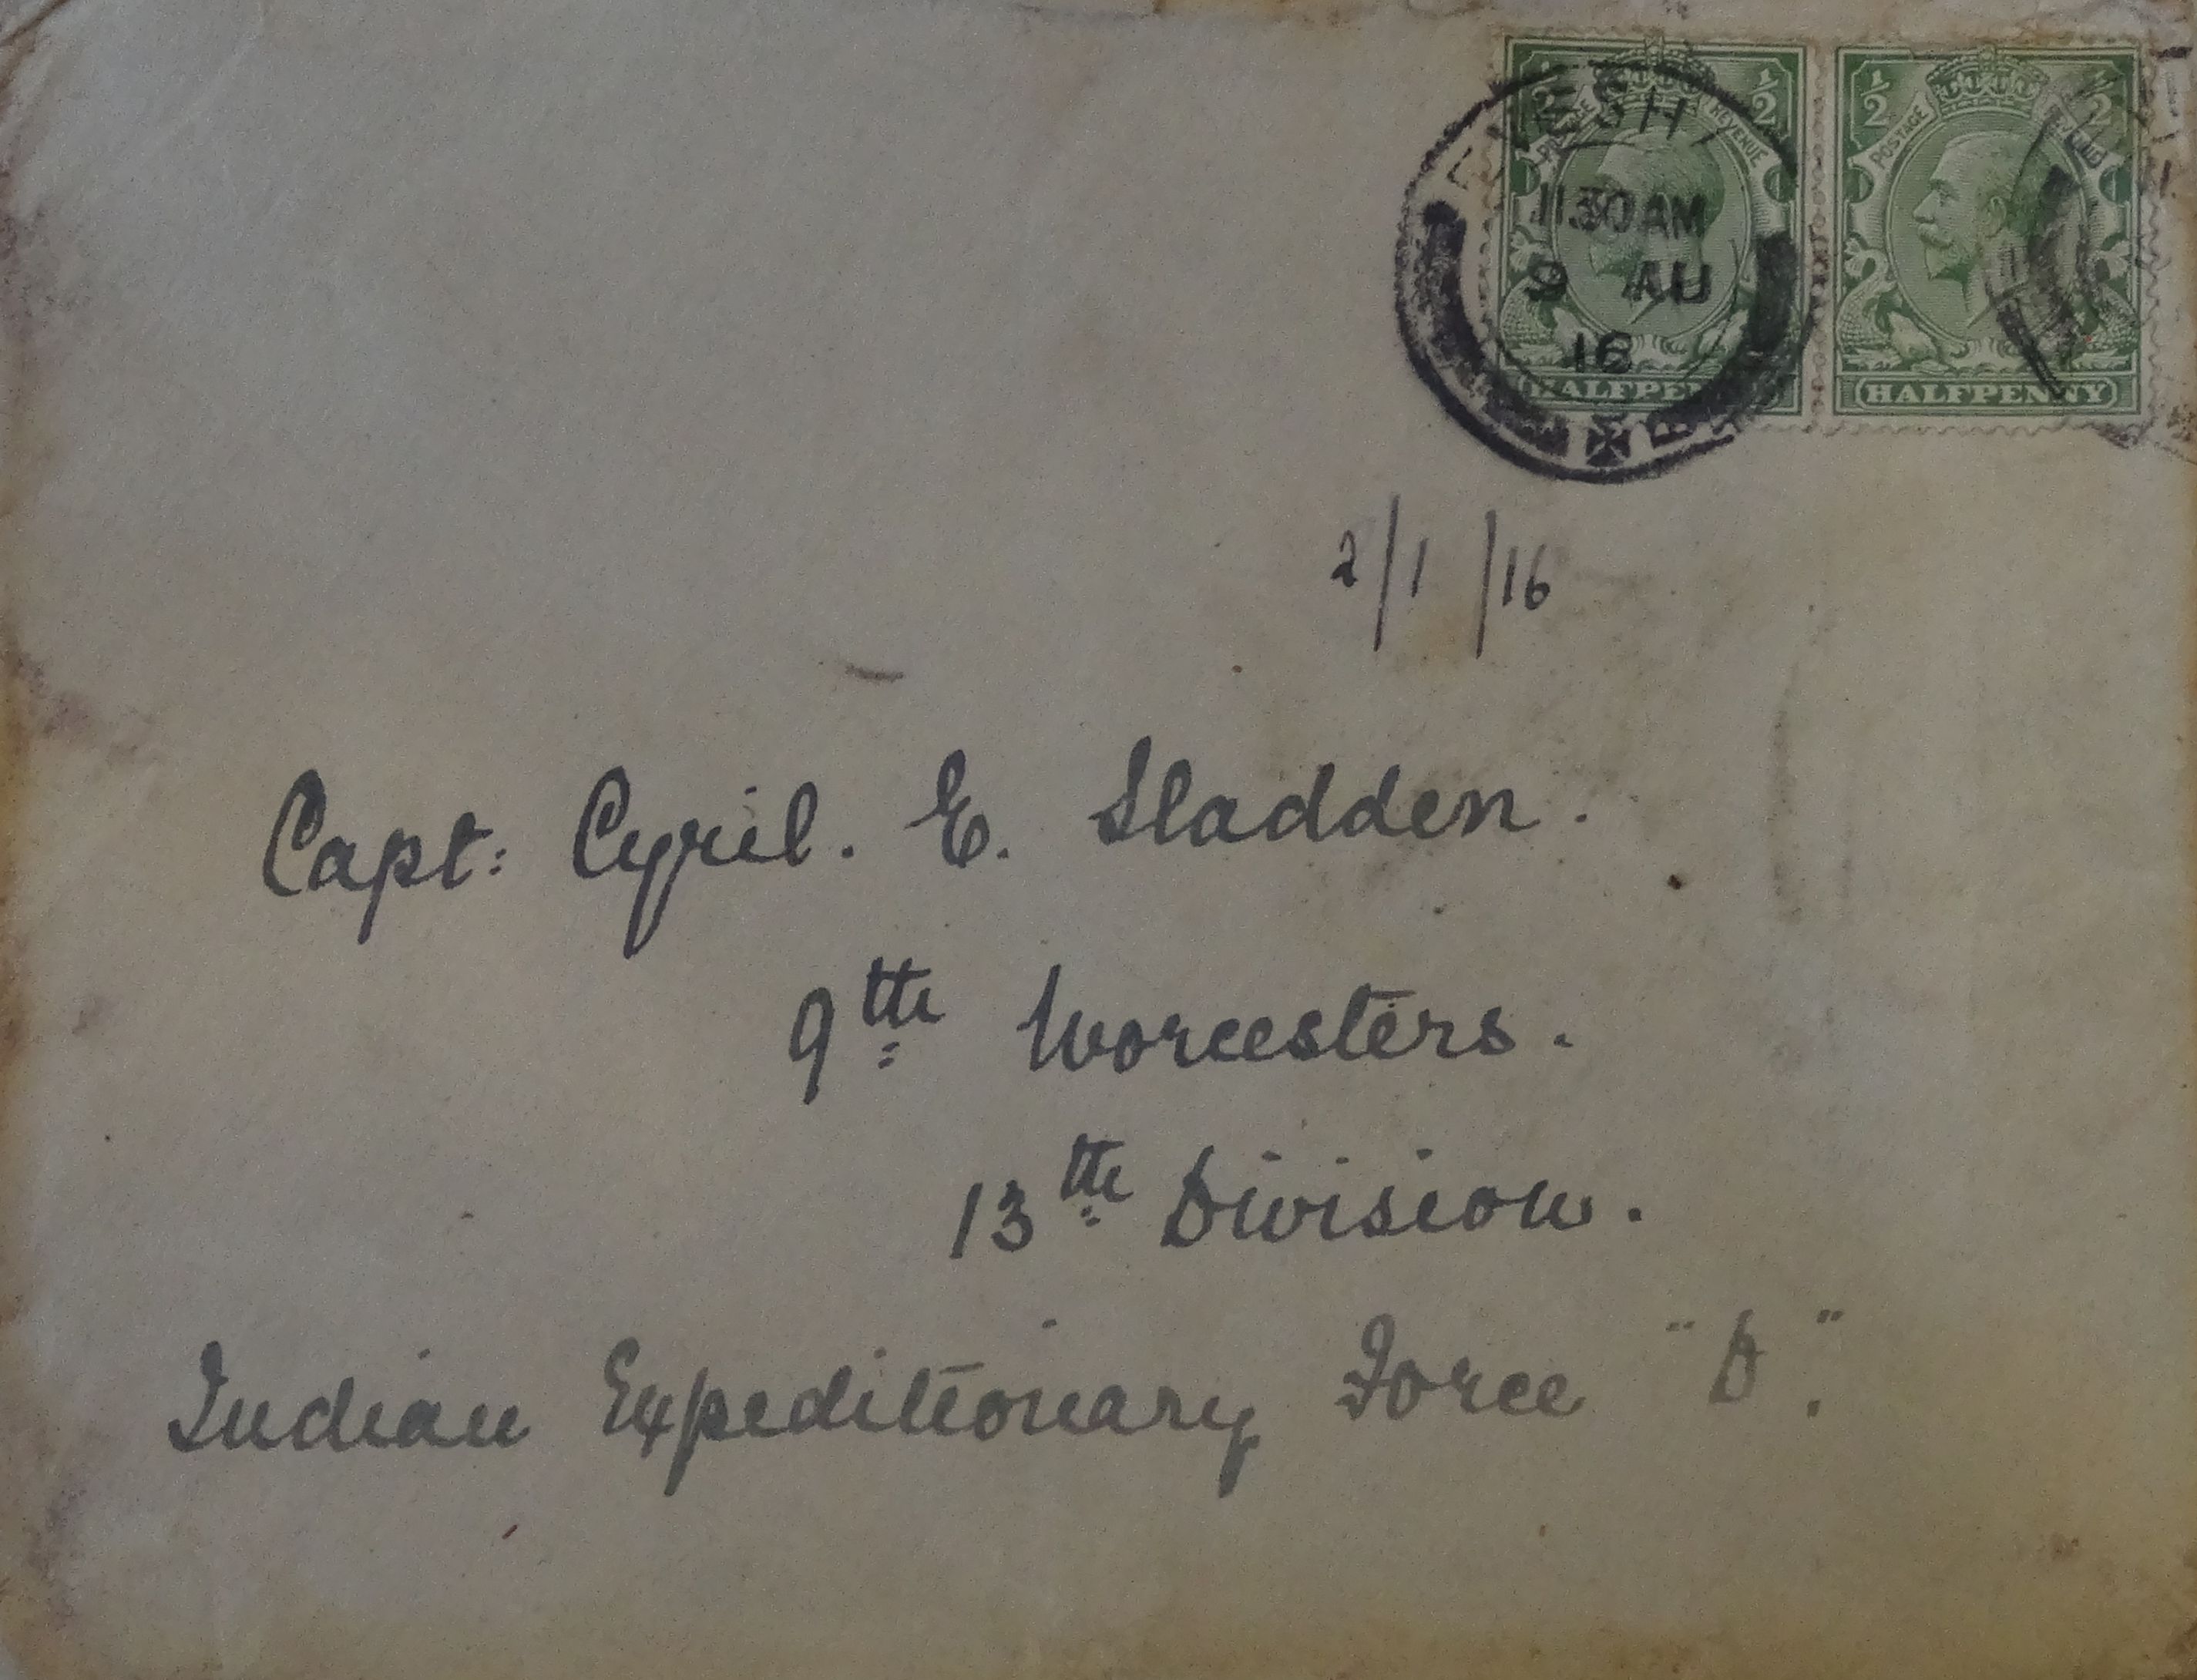 ½ POSTAGE REVENUE ½ ½ POSTAGE ½
11 30 AM
9 AU
16
HALFPENNY HALFPENNY
2/1/16
Capt: Cyril. E. Sladden.
9th Worcesters.
13th Division.
Indian Expeditionary Force "D".